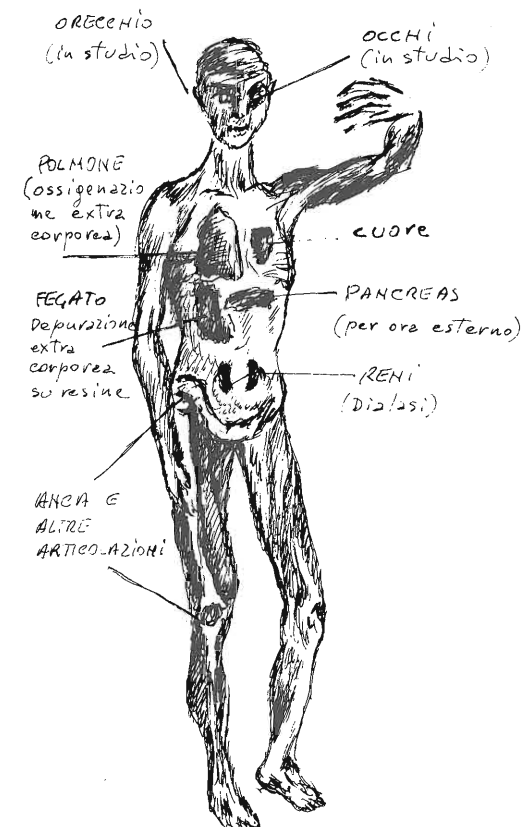 ORECCHIO
(in studio)
OCCHI
(in studio)
POLMONE
(ossigenazio
ne extra
corporea)
CUORE
FEGATO
Depurazione
extra
corporea
su resine
PANCREAS
(per ora esterno)
RENI
(Dialasi)
ANCA E
ALTRE
ARTICOLAZIONI